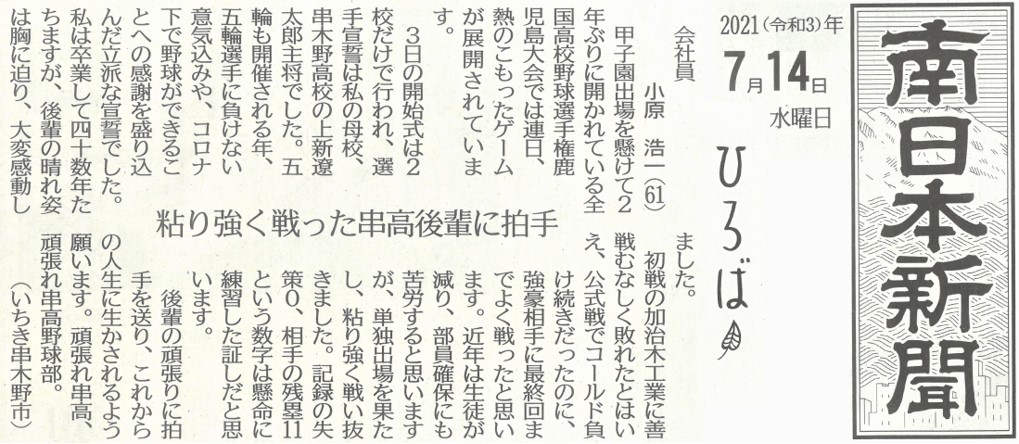 南日本新聞
2021（令和3）年
7月14日
水曜日
ひろば
粘り強く戦った串高後輩に拍手
会社員
小原　浩一（61）
甲子園出場を懸けて２
年ぶりに開かれている全
国高校野球選手権鹿
児島大会では連日、
熱のこもったゲーム
が展開されていま
す。
３日の開始式は２
校だけで行われ、選
手宣誓は私の母校、
串木野高校の上新遼
太郎主将でした。五
輪も開催される年、
五輪選手に負けない
意気込みや、コロナ
下で野球ができるこ
とへの感謝を盛り込
んだ立派な宣誓でした。
私は卒業して四十数年た
ちますが、後輩の晴れ姿
は胸に迫り、大変感動し
ました。
初戦の加治木工業に善
戦むなしく敗れたとはい
え、公式戦でコールド負
け続きだったのに、
強豪相手に最終回ま
でよく戦ったと思い
ます。近年は生徒が
減り、部員確保にも
苦労すると思います
が、単独出場を果た
し、粘り強く戦い抜
きました。記録の失
策０、相手の残塁11
という数字は懸命に
練習した証しだと思
います。
後輩の頑張りに拍
手を送り、これから
の人生に生かされるよう
願います。頑張れ串高、
頑張れ串高野球部。
（いちき串木野市）